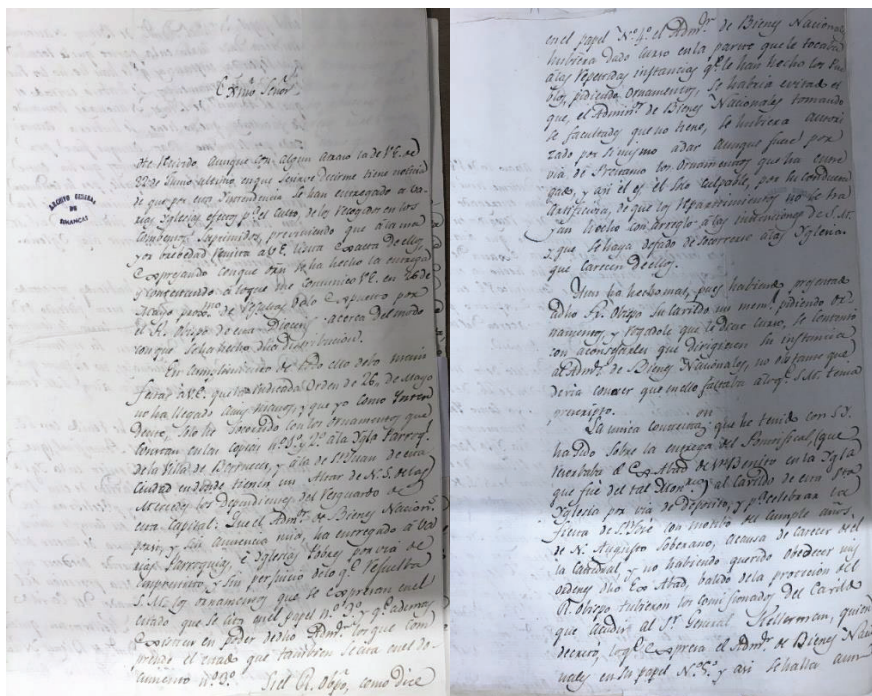 Exmo. Señor.
ARCHIVO GENERAL
DE
SIMANCAS
He recivido aunque con algun atraso la de V.E. de
22 de Junio ultimo en que se sirve decirme tiene noticia
de que por esta Intendencia se han entregado a va-
rias Iglesias efectos pa. el culto, de los recogidos en los
combentos suprimidos, previniendo que a la ma-
yor brebedad remita a V.E. lista exacta de ellos,
expresando con que orn se ha hecho la entrega
y contestando a lo que me comunicó V.E. en 26 de
Mayo de resultas de lo expuesto por
el Rdo. Obispo de esta Diocesis acerca del modo
con que se ha hecho dha distribucion.
En cumplimiento de todo ello debo mani-
festar a V.E. que la indicada Orden de 26 de Mayo
no ha llegado a mis manos, y que yo como Inten-
dente, solo he socorrido con los Ornamentos que
constan en las copias nos. 1º y 2º a la Ygla Parroql.
de la Villa de y a la de Sn. Juan de esta
Ciudad en donde tienen un Altar de N. S. de las
Mercedes los dependientes del resguardo de
esta Capital: Que el Admr. de Bienes Nacions.
por si, y sin anuencia mia, ha entregado á va-
rias Parroquias, é Iglesias pobres por via de
emprestito, y sin perjuicio de lo qe. resuelba
S.M. los ornamentos que se expresan en el
estado que se cita en el papel nº 3º y qe. ademas
existen en poder de dho Admr. los que com-
prende el estado que tambien se cita en el do-
cumento nº 3º. Si el R. Obpo, como dice
en el papel Nº 4º el Admr. de Bienes Nacionals.
hubiera dado curso en la parte que le tocaba
a las repetidas instancias qe. le han hecho los Pue-
blos, pidiendo Ornamentos, se habria evitado el
que, el Adminr. de Bienes Nacionales tomando-
se facultades que no tiene, se hubiera autori-
zado por si mismo a dar aunque fuese por
via de Prestamo los Ornamentos que ha entre-
gado, y asi él es el solo culpable, por su conducta
de que los repartimientos no se ha-
yan hecho con arreglo a las intenciones de S.M.
y que se haya dejado de socorrer a las Yglesias
que carecen de ellos.
Aun ha hecho mas, pues habiendo presentado
a dho Sr. Obispo su Cavildo un meml. pidiendo Or-
namentos, y rogadole que le diese curso, se contentó
con aconsejarles que dirigiesen la instancia
al Admr. de Bienes Nacionales, no obstante que
devia conocer que en ello faltaba a lo qe. S.M. tenia
prescripto.
La unica contextacion que he tenido con S.S.
ha sido sobre la entrega del Pontifical, que
reserbaba el Ex Abad de Sn. Benito en la Ygla
que fué del tal Monrio. al Cavildo de esta Sta.
Yglesia por via de deposito, y pa. celebrar la
fiesta de Sn. José con motivo del cumple años
de N. Augusto Soberano, a causa de carecer de él
la Catedral, y no habiendo querido obedecer mis
ordenes dho Ex Abad, balido de la proteccion del
R. Obispo tubieron los comisionados del Cavildo
que acudir al Sr. General Kellerman, quien
decretó, lo qe. expresa el Admr. de Bienes Naci-
onales en su papel Nº 5º, y asi se halla aun